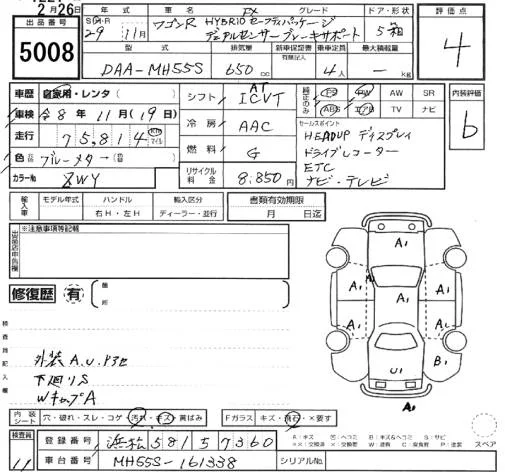 2月26日
出品番号 5008
年式 車名 グレード ドア・形状 評価点
29 11月 ワゴンR FX HYBRID セーフティパッケージ 5 箱 4
デュアルセンサーブレーキサポート
型式 排気量 新車保証書 有限記入 乗車定員 最大積載量
DAA-MH55S 650 cc 4人 — kg
車歴 自家用・レンタ
車検 令8年11月(19日)
走行 75,814 km マイル
色 ブルーメタ→
カラーNo. ZWY
シフト AT ICVT
冷房 AAC
燃料 G
リサイクル料金 8.850円
純正のみ PS PW AW SR
ABS エアB TV ナビ
内装評価 b
セールスポイント
HEADUP ディスプレイ
ドライブレコーター
ETC
ナビ・テレビ
輸入車 モデル年式 ハンドル 輸入区分 書類有効期限
右H・左H ディーラー・並行 月 日迄
※注意事項等記載
出品店申告欄
修復歴 有 箇所
検査員記入欄
外装A.U.P3it
下廻りS
WキャプA
A1
A1
A1
A1
A1
A1
B1
U1
A1
内装シート 穴・破れ・スレ・コゲ・汚れ・キズ・黄ばみ Fガラス キズ・飛石・×要す
登録番号 浜松 581 57360
車台番号 MH55S-161338 シリアルNo.
検査員 11
A:キズ U:ヘコミ B:キズ&ヘコミ S:サビ
××:交換済 ×:交換要 W:波 C:腐食 P:塗装
スペア